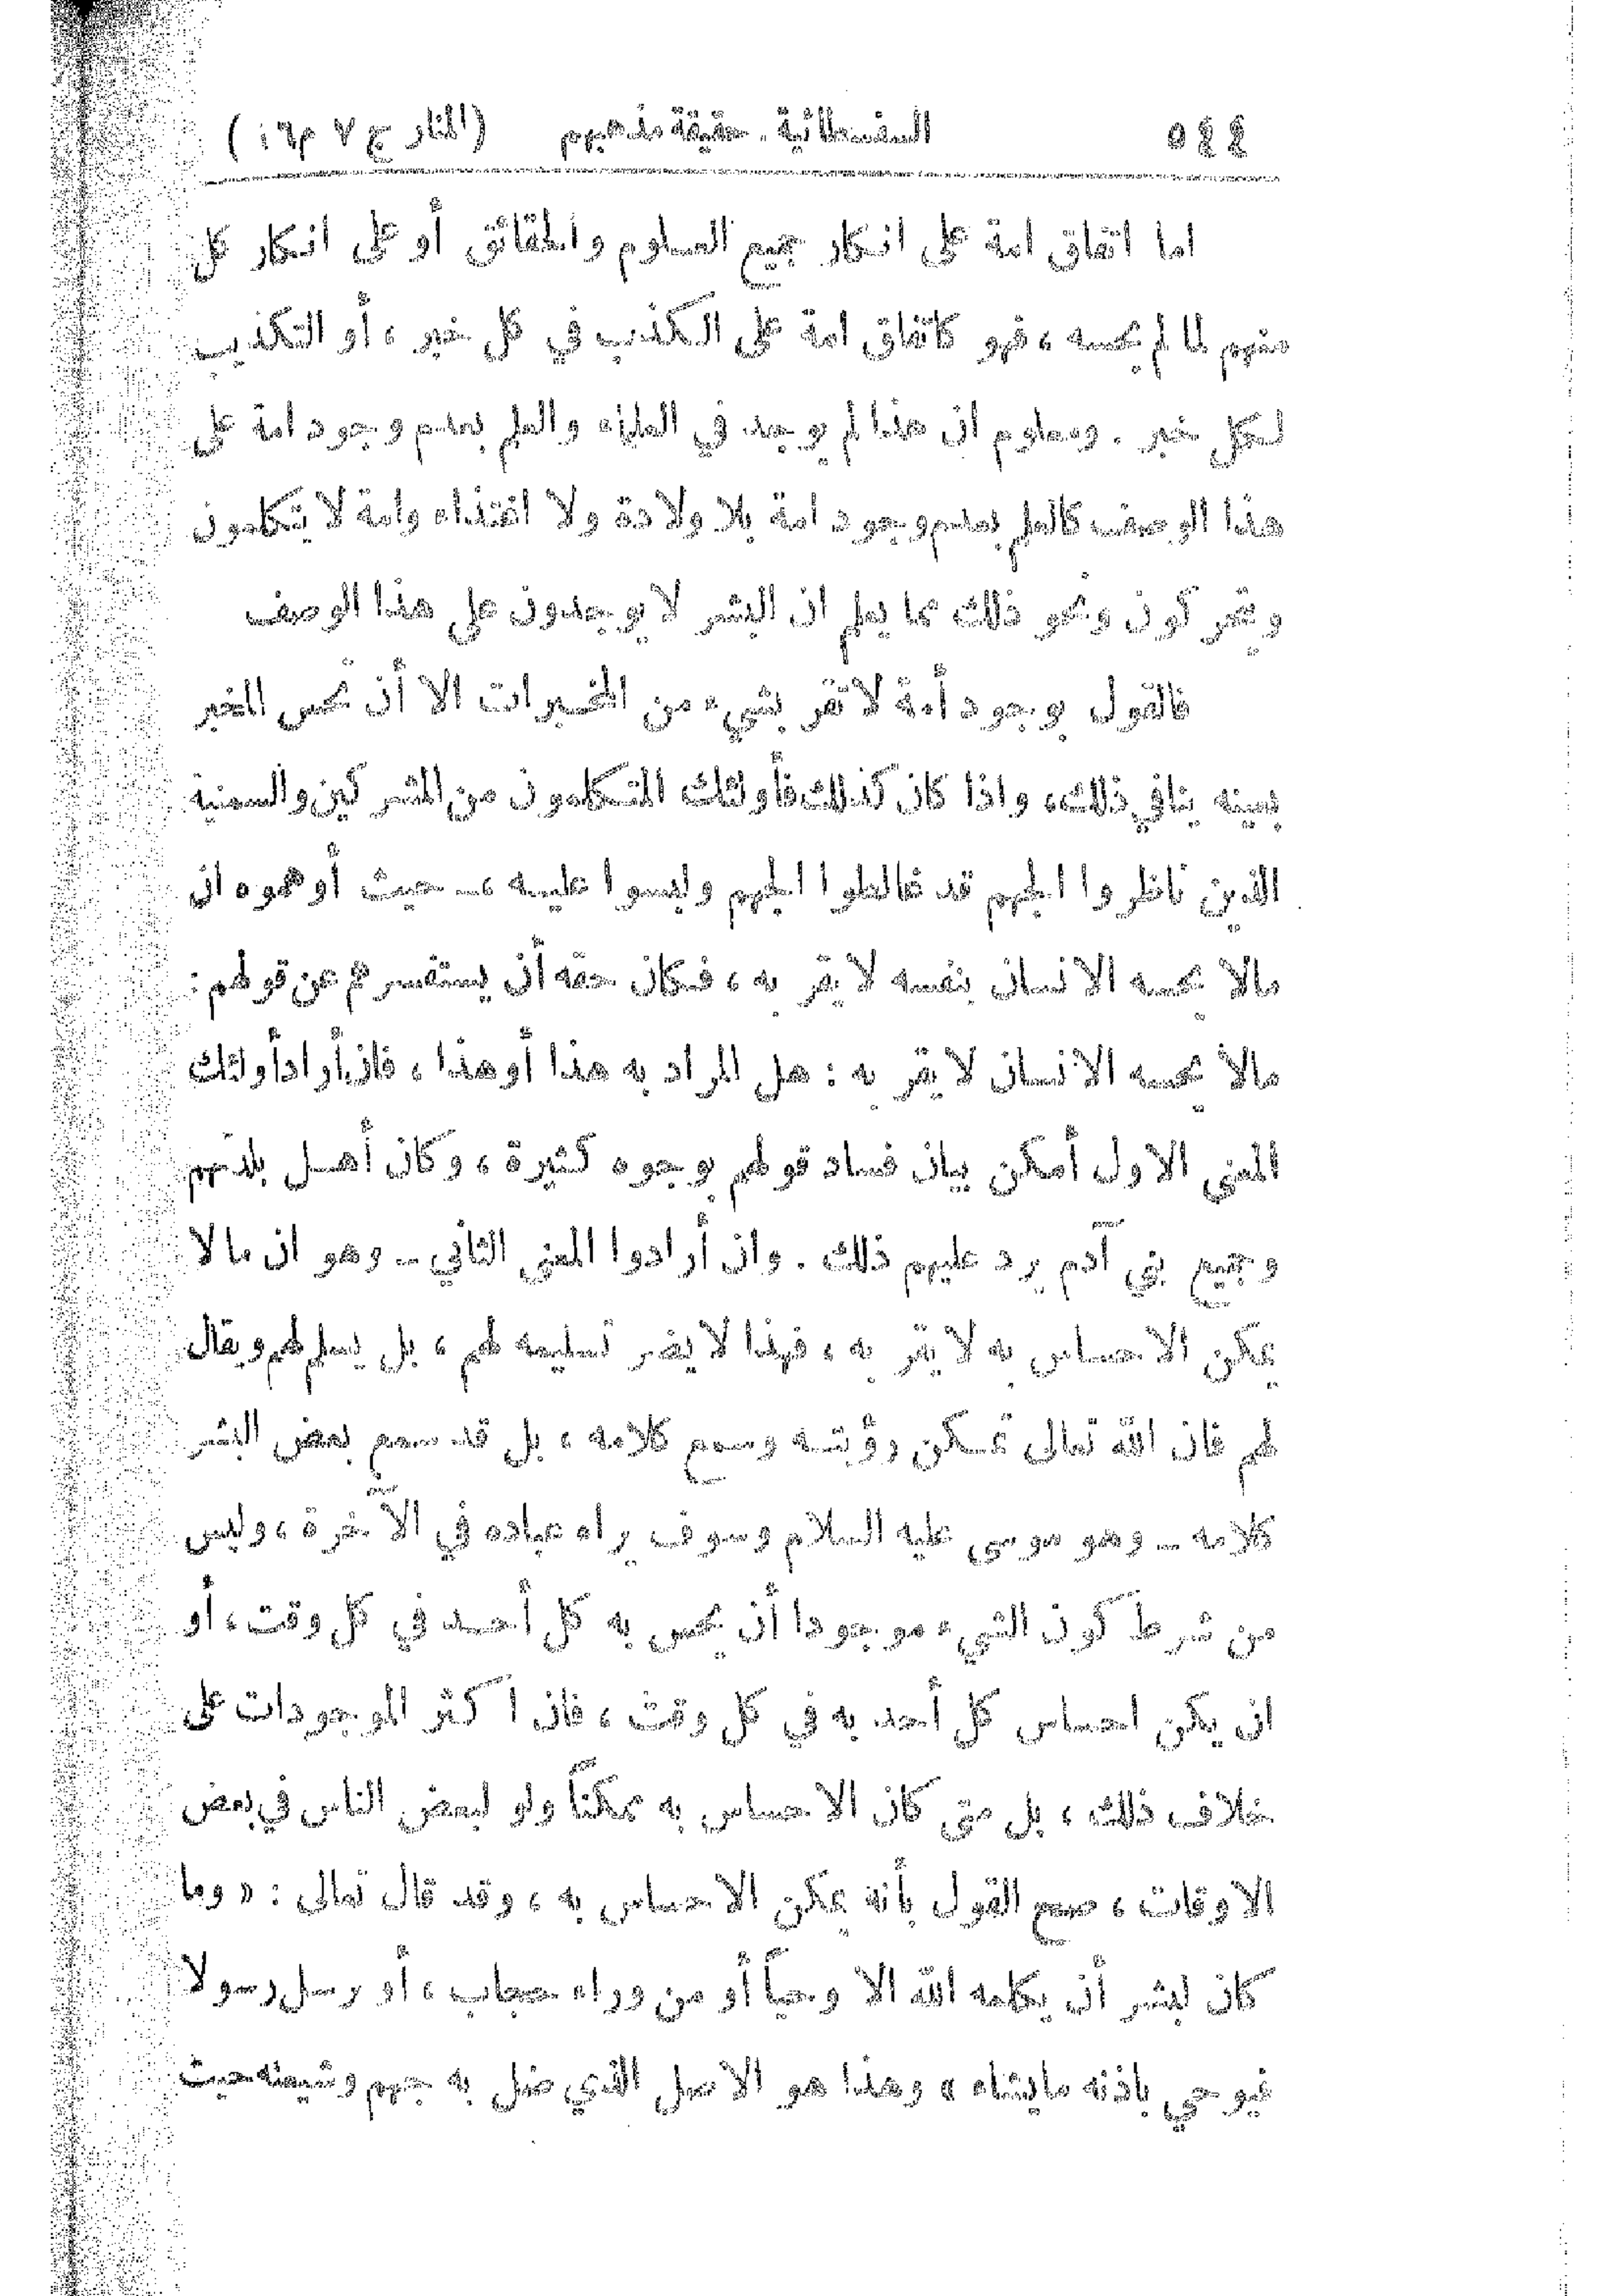 ٥٤٤ السفسطائية . حقيقة مذهبهم (المنار ج ٧ م ١٦)
اما اتفاق امة على انكار جميع العلوم والحقائق أو على انكار كل
منهم لما لم يحسه ، فهو كاتفاق امة على الكذب في كل خبر ، أو التكذيب
لكل خبر . ومعلوم ان هذا لم يوجد في العلماء والعلم بعدم وجود امة على
هذا الوصف كالعلم بعدم وجود امة بلا ولادة ولا اغتذاء وامة لا يتكلمون
ويتحركون ونحو ذلك مما يعلم ان البشر لا يوجدون على هذا الوصف
فالقول بوجود أمة لا تقر بشيء من المخبرات الا أن تحس المخبر
بعينه ينافي ذلك، واذا كان كذلك فأولئك المتكلمون من المشركين والسمنية
الذين ناظروا الجهم قد غالطوا الجهم ولبسوا عليه ، ـ حيث أوهموه ان
مالا يحسه الانسان بنفسه لا يقر به ، فكان حقه أن يستفسرهم عن قولهم :
مالا يحسه الانسان لا يقر به : هل المراد به هذا أو هذا ، فان أراد أولئك
المعنى الاول أمكن بيان فساد قولهم بوجوه كثيرة ، وكان أهل بلدتهم
وجميع بني آدم يرد عليهم ذلك . وان أرادوا المعنى الثاني ـ وهو ان مالا
يمكن الاحساس به لا يقر به ، فهذا لا يضر تسليمه لهم ، بل يسلم لهم ويقال
لهم فان الله تعالى تمكن رؤيته وسمع كلامه ، بل قد سمع بعض البشر
كلامه ـ وهو موسى عليه السلام وسوف يراه عباده في الآخرة ، وليس
من شرط كون الشيء موجودا أن يحس به كل أحد في كل وقت ، أو
ان يمكن احساس كل أحد به في كل وقت ، فان أكثر الموجودات على
خلاف ذلك ، بل متى كان الاحساس به ممكناً ولو لبعض الناس في بعض
الاوقات ، صح القول بأنه يمكن الاحساس به ، وقد قال تعالى : « وما
كان لبشر أن يكلمه الله الا وحياً أو من وراء حجاب ، أو يرسل رسولا
فيوحي باذنه ما يشاء » وهذا هو الاصل الذي ضل به جهم وشيعته حيث